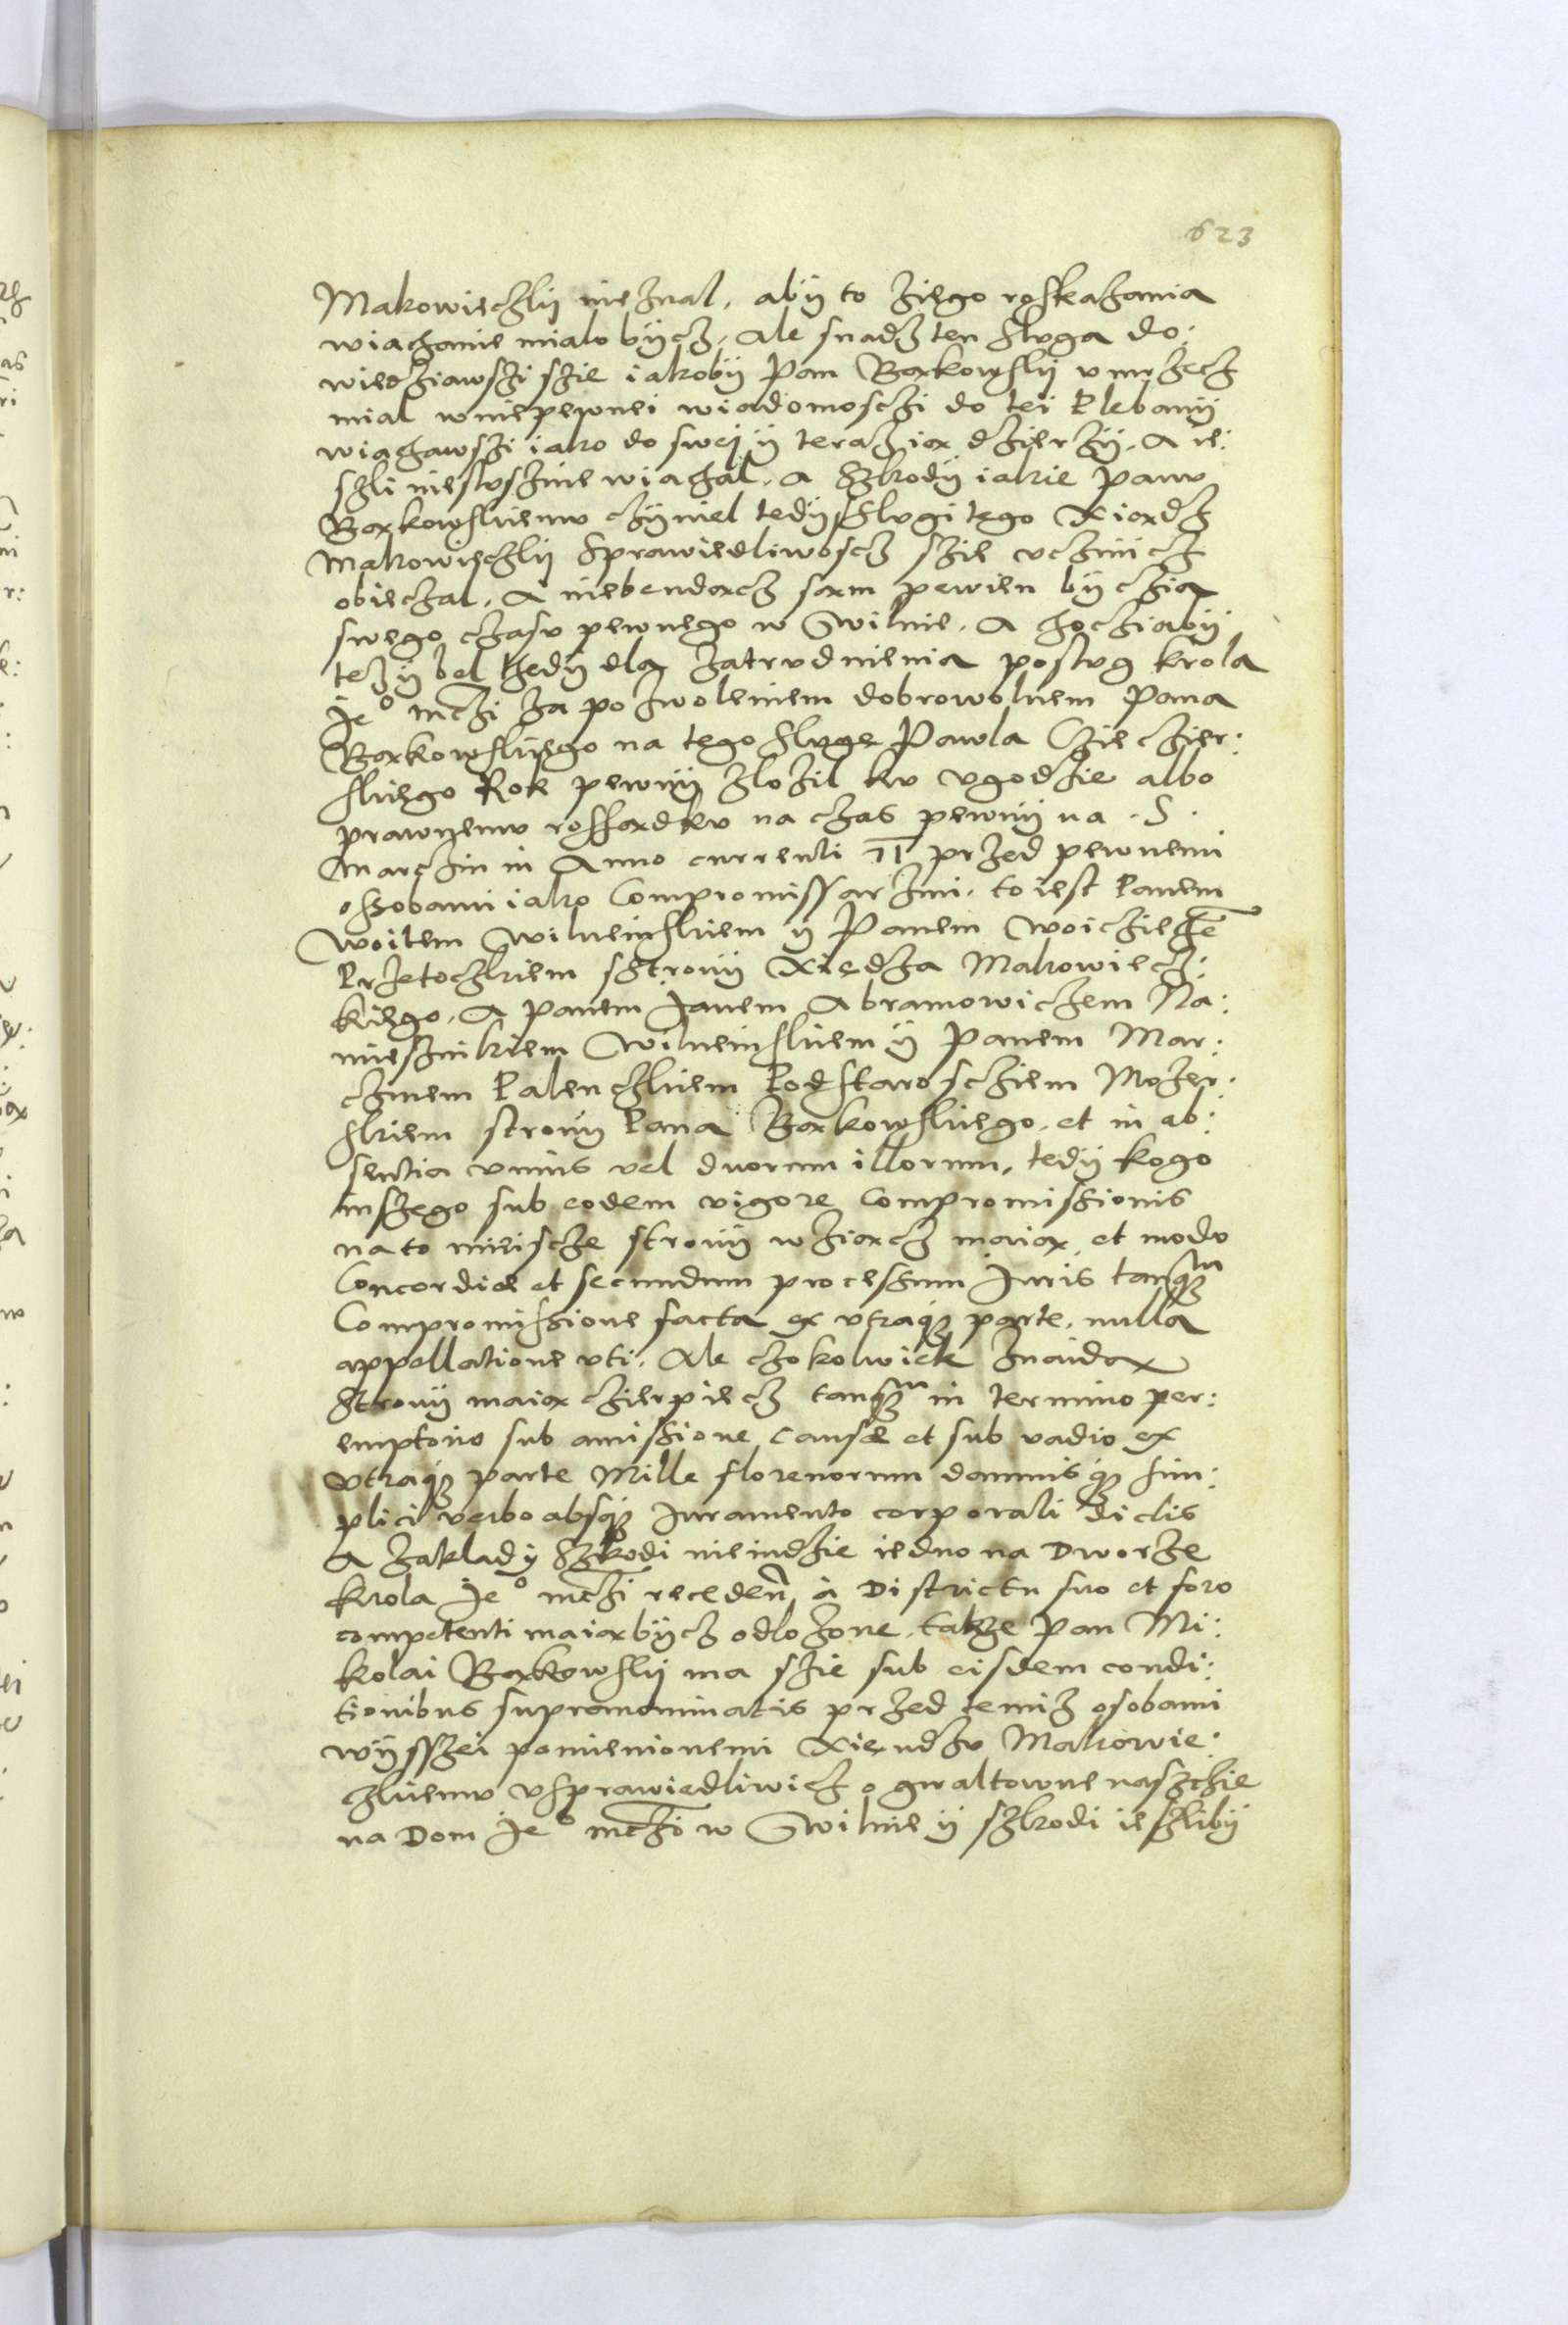 623
Makowieczky nieznal, aby to ziego roskazania
wiachanie mialo bycz, Ale snadz ten sluga do:
wiedziawszi szie iakoby Pan Barkowsky vmrzecz
mial w niepewnei wiadomosczi do tei Plebany
wiachawszi iako do swey y teraz ia dzierzy. A ie:
szli niesluszne wiachal, a Szkody iakie panu
Barkowskiemu czyniel tedy Slugi tego Xiadz
Makowieczky Sprawiedliwoscz szie vczinicz
obieczal, A niebendacz sam pewien byczia
swego czasu pewnego w Wilnie. A chocziaby
tezy bel thedy dla zatrudnienia poslug krola
Je° mczi za pozwoleniem dobrowolnem Pana
Barkowskiego na tego sluge Pawla Cziechier:
skiego Rok pewny zlozil ku vgodzie albo
prawnemu rossadku na czas pewny na S.
Marczin in Anno currenti 71 przed pewnemi
ossobami iako Compromissarzmi, to iest Panem
Woitem Wilneinskiem y Panem Woiciechē
Przetoczkiem strony Xiędza Makowiecz:
kiego, A panem Janem Abramowiczem Na:
miesznikiem Wilneinskiem y Panem Mar:
czinem Palenczkiem Podstarosciem Mozer:
skiem strony Pana Barkowskiego, et in ab:
sentia vnius vel duorum illorum, tedy kogo
inszego sub eodem vigore Compromissionis
na to miescze strony wziacz maia, et modo
Concordiæ et secundum processum Juris tanqm
Compromissione facta ex vtraq parte, nulla
appellatione vti, Ale czokolwiek znaida
Strony maia czierpiecz tanqm in termino per:
emptorio sub amissione causæ et sub vadio ex
vtraq parte Mille florenorum damnisq sim:
plici verbo absq Juramento corporali dictis
A zaklady Szkodi nieindzie iedno na Dworze
krola Je° mczi recedeñ à Districtu suo et foro
competenti maia bycz odlozone, takze Pan Mi:
kolai Barkowsky ma szie sub eisdem condi:
tionibus supranominatis przed temiz osobami
wysszei pomienionemi Xiendzu Makowie:
czkiemu vsprawiedliwicz o gwaltowne naszczie
na Dom Je° mczi w Wilnie y szkodi ieszliby